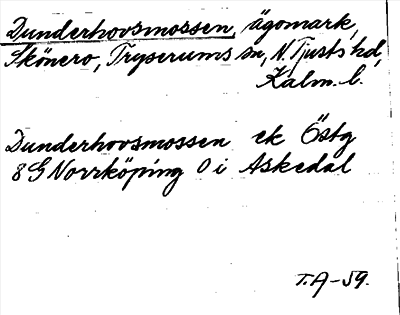 Dunderhovsmossen, ägomark,
Skönero, Tryserums sn, N. Tjusts hd,
Kalm. l.
Dunderhovsmossen ek Östg
8G Norrköping 0 i Askedal
T.A-59.